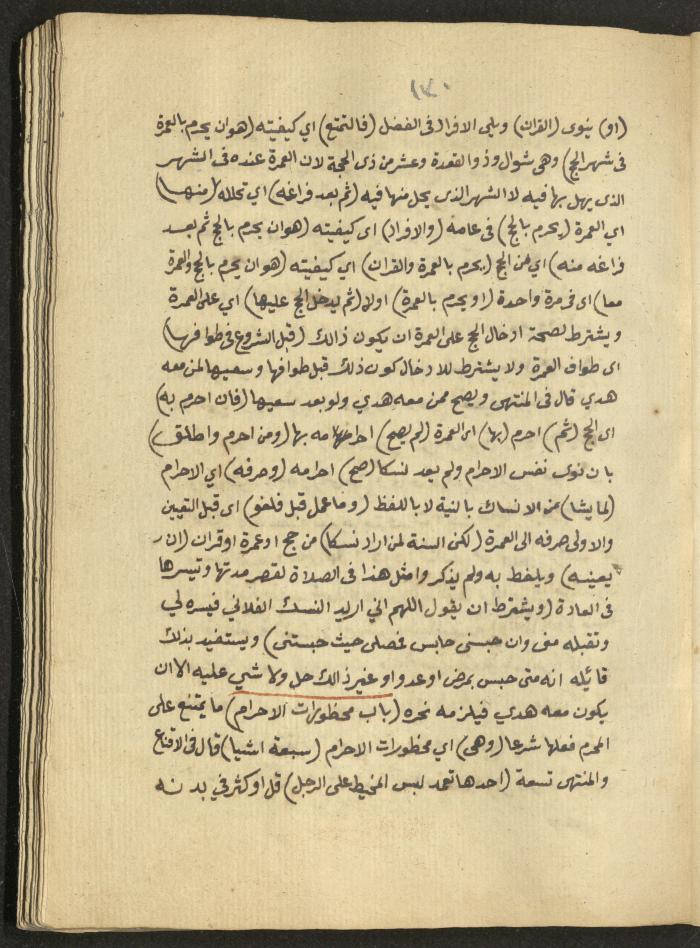 ١٣٠
(او) ينوى (القران) ويلى الافراد فى الفضل (فالتمتع) اي كيفيته (هو ان يحرم بالعمرة
فى شهر الحج) وهى شوال وذو القعدة وعشر من ذى الحجة لان العمرة عنده فى الشهر
الذى يهل بها فيه لا الشهر الذى يحل منها فيه (ثم بعد فراغه) اي تحلله (منها)
اي العمرة (يحرم بالحج) فى عامه (والافراد) اى كيفيته (هو ان يحرم بالحج ثم بعد
فراغه منه) اي من الحج (يحرم بالعمرة والقران) اي كيفيته (هو ان يحرم بالحج والعمرة
معا) اى فى مرة واحدة (او يحرم بالعمرة) اولا (ثم يدخل الحج عليها) اي على العمرة
ويشترط لصحة ادخال الحج على العمرة ان يكون ذالك (قبل الشروع فى طوافها)
اى طواف العمرة ولا يشترط للادخال كون ذلك قبل طوافها وسعيها لمن معه
هدي قال فى المنتهى ويصح ممن معه هدي ولو بعد سعيها (فان احرم به)
اى الحج (ثم) احرم (بها) اى العمرة (لم يصح) احرامه بها (ومن احرم واطلق)
بان نوى نفس الاحرام ولم يعد نسكا (صح) احرامه (وصرفه) اي الاحرام
(لما يشا) من الانساك بالنية لا باللفظ (وما عمل قبل فلغو) اى قبل التعيين
والاولى صرفه الى العمرة (لكن السنة لمن اراد نسكا) من حج او عمرة او قران (ان
يعينه) ويلفظ به ولم يذكروا مثل هذا فى الصلاة لقصر مدتها وتيسرها
فى العادة (ويشترط ان يقول اللهم اني اريد النسك الفلاني فيسره لي
وتقبله منى وان حبسنى حابس فمحلى حيث حبستنى) ويستفيد بذلك
قائله انه متى حبس بمرض او عدو او غير ذالك حل ولا شي عليه الا ان
يكون معه هدي فيلزمه نحره (باب محظورات الاحرام) ما يمتنع على
المحرم فعلها شرعا (وهى) اي محظورات الاحرام (سبعة اشيا) قال فى الاقناع
والمنتهى تسعة (احدها تعمد لبس المخيط على الرجل) قل او كثر في بدنه